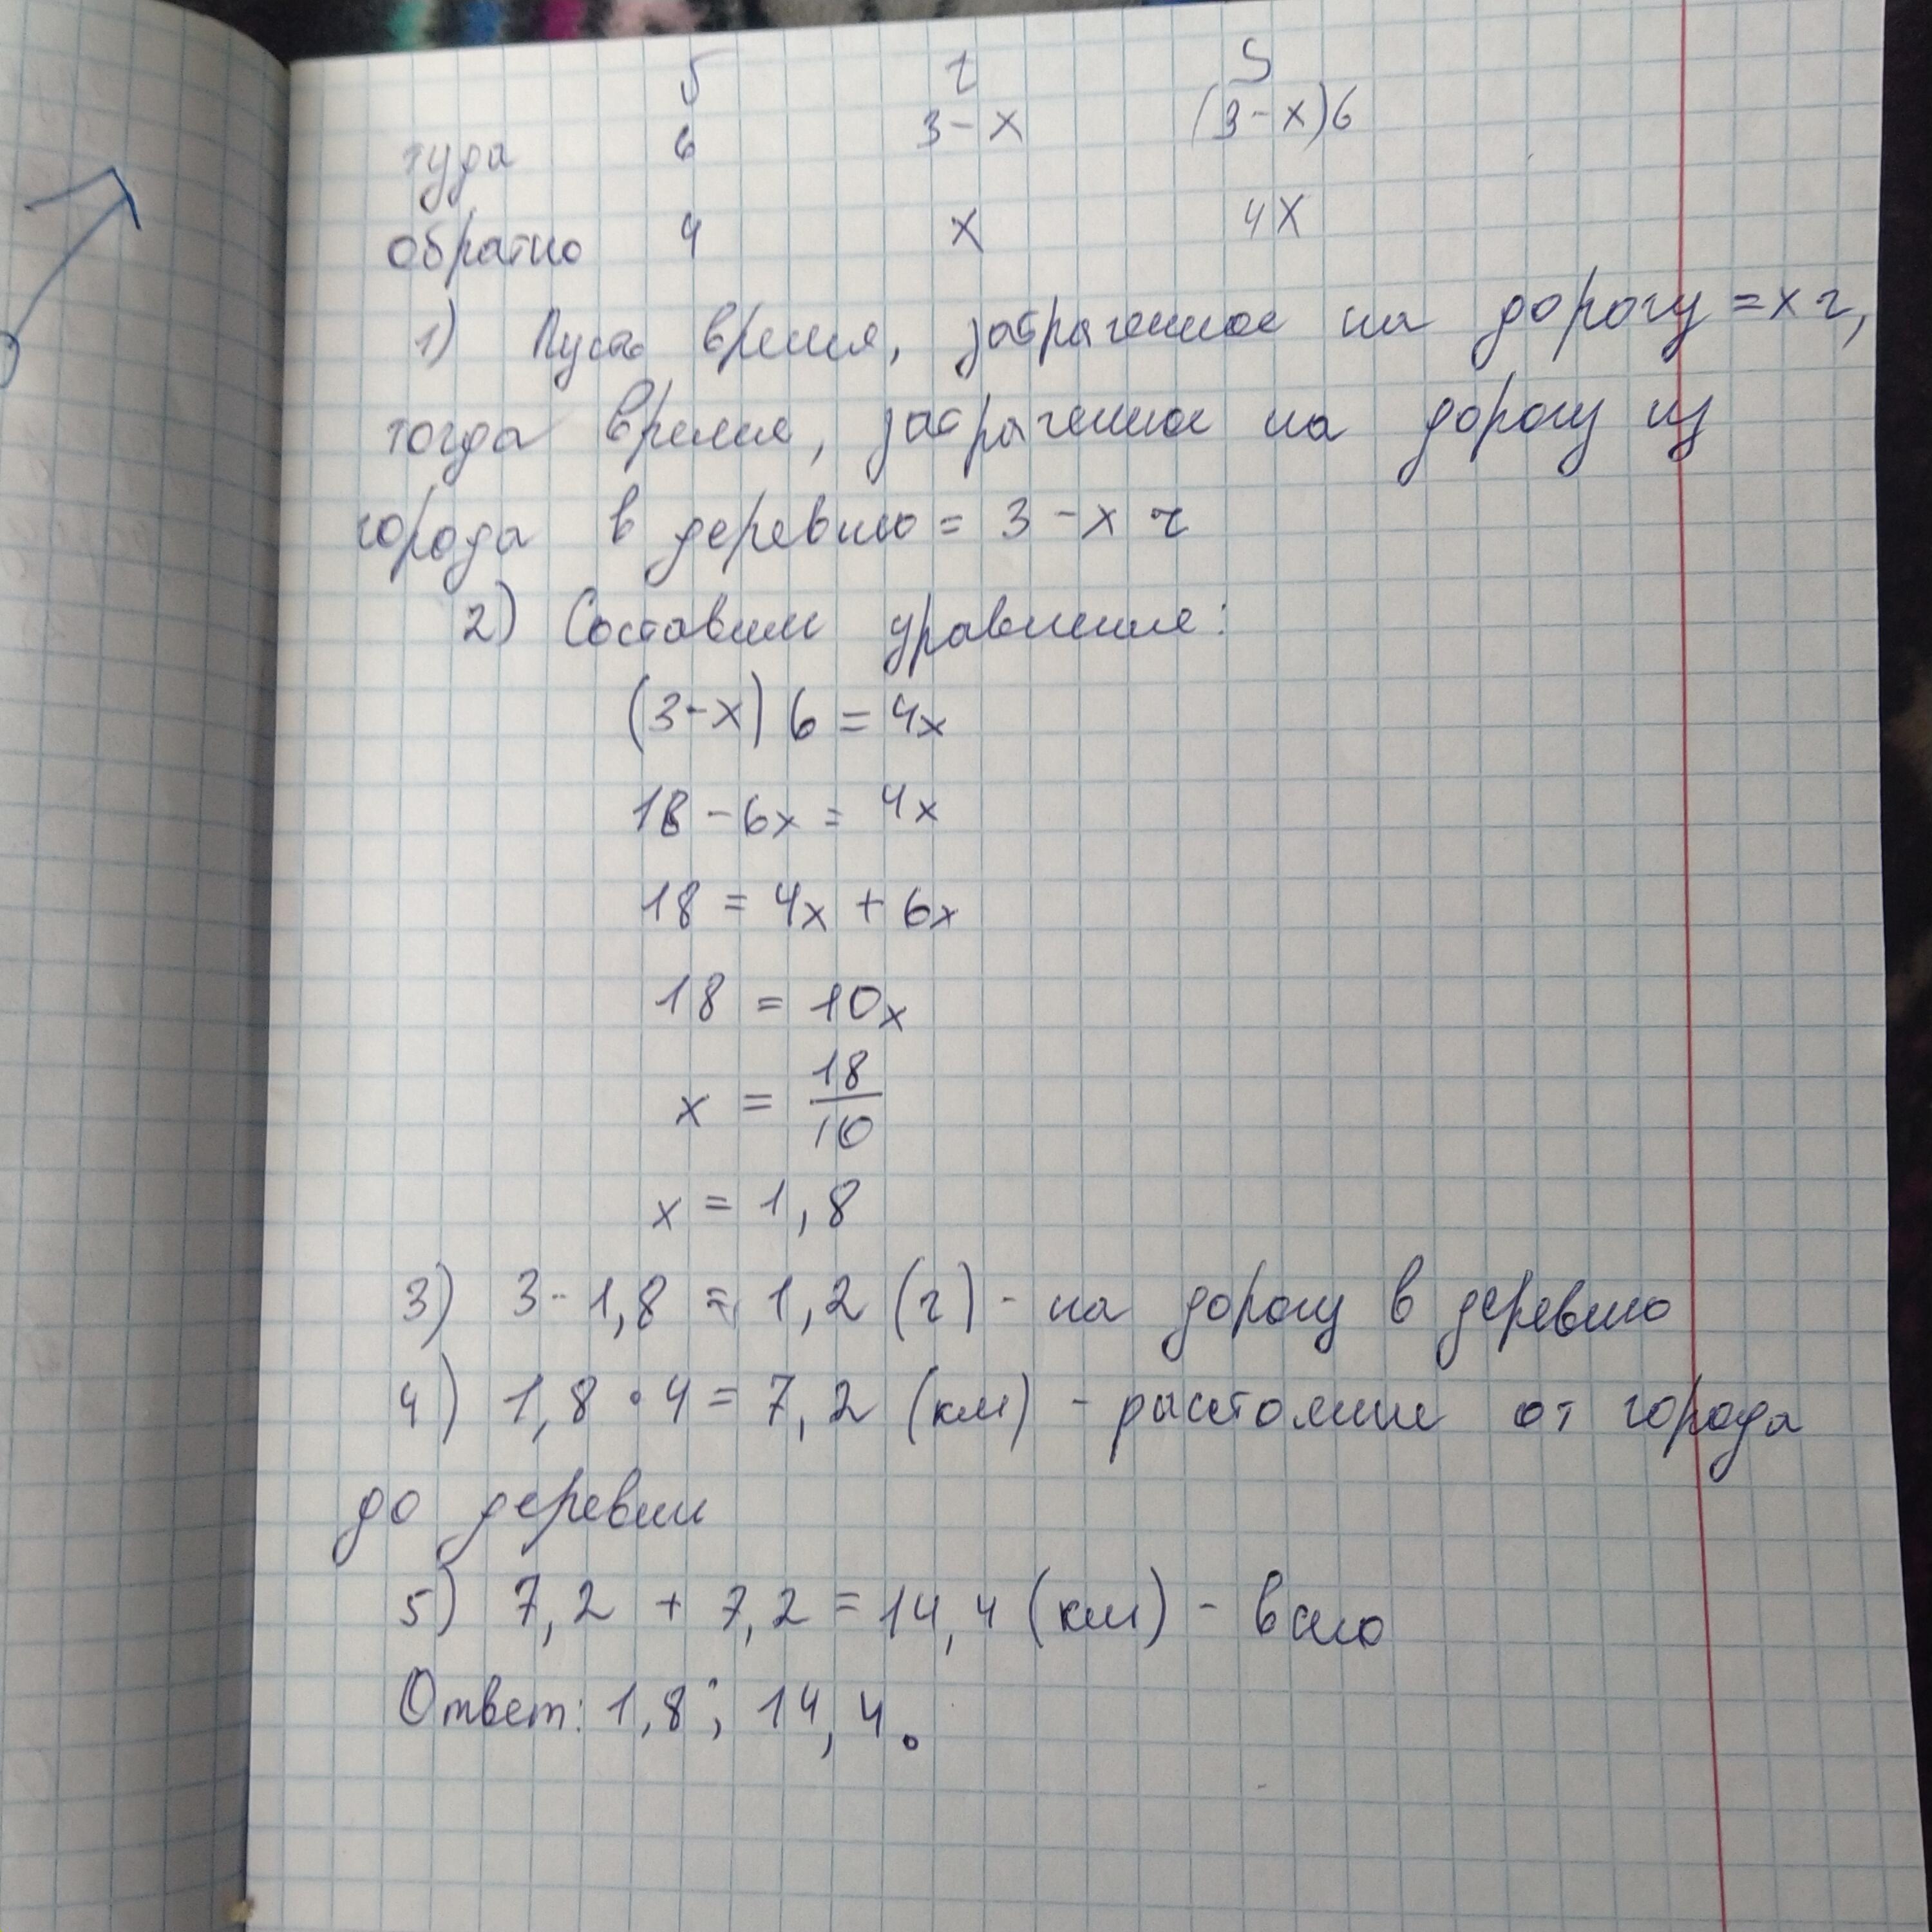 v t S
туда 6 3-x (3-x)6
обратно 4 x 4x
1) Пусть время, затраченное на дорогу = x ч,
тогда время, затраченное на дорогу из
города в деревню = 3 - x ч
2) Составим уравнение:
(3-x) 6 = 4x
18 - 6x = 4x
18 = 4x + 6x
18 = 10x
x = 18/10
x = 1,8
3) 3 - 1,8 = 1,2 (ч) - на дорогу в деревню
4) 1,8 · 4 = 7,2 (км) - расстояние от города
до деревни
5) 7,2 + 7,2 = 14,4 (км) - всего
Ответ: 1,8; 14,4.